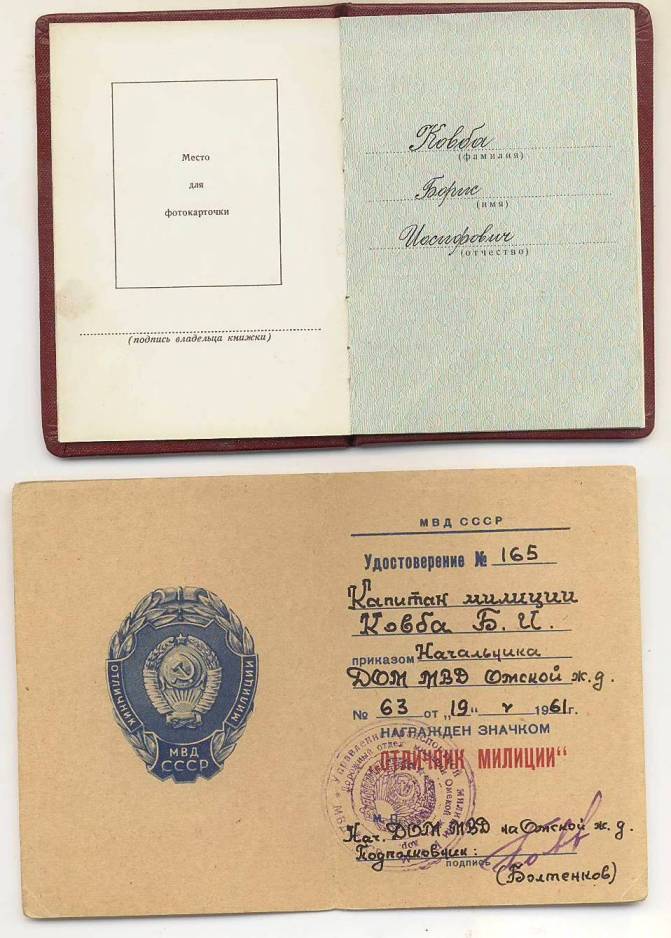 Место
для
фотокарточки
(подпись владельца книжки)
Ковба
(фамилия)
Борис
(имя)
Иосифович
(отчество)
ОТЛИЧНИК МИЛИЦИИ
МВД
СССР
МВД СССР
Удостоверение № 165
Капитан милиции
Ковба Б. И.
приказом Начальника
ДОМ МВД Омской ж. д.
№ 63 от „19„ v 1961г.
НАГРАЖДЕН ЗНАЧКОМ
„ОТЛИЧНИК МИЛИЦИИ“
М. П.
Нач. ДОМ МВД на Омской ж. д.
Подполковник:
подпись
(Болтенков)